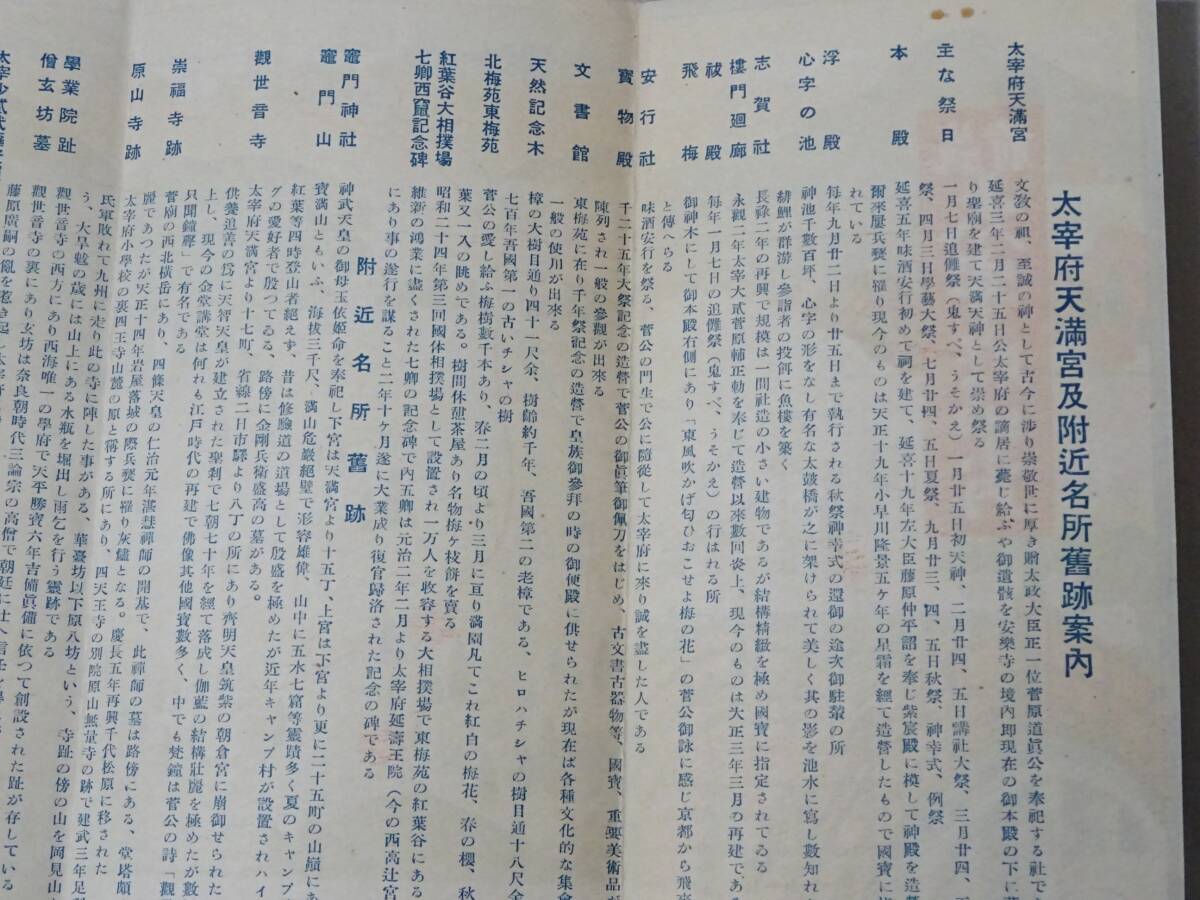 太宰府天滿宮及附近名所舊跡案內
太宰府天滿宮
文敎の祖、至誠の神として古今に涉り崇敬世に厚き贈太政大臣正一位菅原道眞公を奉祀する社で
延喜三年二月二十五日公太宰府の謫居に薨じ給ふや御遺骸を安樂寺の境內卽現在の御本殿の下に
り聖廟を建て天滿天神として崇め祭る
主な祭日
一月七日追儺祭(鬼すべ、うそかえ)一月廿五日初天神、二月廿四、五日講社大祭、三月廿四、
祭、四月三日學藝大祭、七月廿四、五日夏祭、九月廿三、四、五日秋祭、神幸式、例祭
本殿
延喜五年味酒安行初めて祠を建て、延喜十九年左大臣藤原仲平詔を奉じ紫宸殿に模して神殿を造
爾來屢兵燹に罹り現今のものは天正十九年小早川隆景五ケ年の星霜を經て造營したもので國寶に
れている
浮殿
每年九月廿二日より廿五日まで執行される秋祭神幸式の還御の途次御駐輦の所
心字の池
神池千數百坪、心字の形をなし有名な太皷橋が之に架けられて美しく其の影を池水に寫し數知れ
緋鯉が群游し參詣者の投餌に魚樓を築く
志賀社
長祿二年の再興で規模は一間社造の小さい建物であるが結構精緻を極め國寶に指定されてゐる
樓門廻廊
永觀二年太宰大貳菅原輔正勅を奉じて造營以來數回炎上、現今のものは大正三年三月の再建であ
祓殿
每年一月七日の追儺祭(鬼すべ、うそかえ)の行はれる所
飛梅
御神木にして御本殿右側にあり「東風吹かば匂ひおこせよ梅の花」の菅公御詠に感じ京都から飛來
と傳へらる
安行社
味酒安行を祭る、菅公の門生で公に隨從して太宰府に來り誠を盡した人である
寶物殿
千二十五年大祭記念の造營で菅公の御眞筆御佩刀をはじめ、古文書古器物等、國寶、重要美術品が
陳列され一般の參觀が出來る
文書館
東梅苑に在り千年祭記念の造營で皇族御參拜の時の御便殿に供せられたが現在ば各種文化的な集會
一般の使用が出來る
天然記念木
樟の大樹目通り四十一尺余、樹齡約千年、吾國第二の老樟である、ヒロハチシャの樹目通十八尺余
七百年吾國第一の古いチシャの樹
北梅苑東梅苑
菅公の愛し給ふ梅樹數千本あり、春二月の頃より三月に亘り滿園凡てこれ紅白の梅花、春の櫻、秋
葉又一入の眺めである。樹間休憩茶屋あり名物梅ヶ枝餅を賣る
紅葉谷大相撲場
昭和二十四年第三回國体相撲場として設置され一万人を收容する大相撲場で東梅苑の紅葉谷にある
七卿西竄記念碑
維新の鴻業に盡くされた七卿の記念碑で內五卿は元治二年二月より太宰府延壽王院(今の西高辻宮
にあり事の遂行を謀ること二年十ヶ月遂に大業成り復官歸洛された記念の碑である
附近名所舊跡
竈門神社
神武天皇の御母玉依姬命を奉祀し下宮は天滿宮より十五丁、上宮は下宮より更に二十五町の山巓にあ
竈門山
寶滿山ともい、海拔三千尺、滿山危巖絕壁で形容雄偉、山中に五水七窟等靈蹟多く夏のキャンプ
紅葉等四時登山者絕えず、昔は修驗道の道場として殷盛を極めたが近年キャンプ村が設置されハイ
グの愛好者で殷つてゐる、路傍に金剛兵衛盛高の墓がある。
觀世音寺
太宰府天滿宮より十七町、省線二日市驛より八丁の所にあり齊明天皇筑紫の朝倉宮に崩御せられた
供養追善の爲に天智天皇が建立された聖刹で七朝七十年を經て落成し伽藍の結構壯麗を極めたが數
上し、現今の金堂講堂は何れも江戶時代の再建で佛像其他國寶數多く、中でも梵鐘は菅公の詩「觀
只聞鐘聲」で有名である
崇福寺跡
菅廟の西北橫岳にあり、四條天皇の仁治元年湛慧禪師の開基で、此禪師の墓は路傍にある、堂塔頗
麗であつたが天正十四年岩屋落城の際兵燹に罹り灰燼となる。慶長五年再興千代松原に移された
原山寺跡
太宰府小學校の裏四王寺山麓の原と稱する所にあり、四天王寺の別院原山無量寺の跡で建武三年足利
民軍敗れて九州に走り此の寺に陣した事がある、華臺坊以下原八坊という、寺趾の傍の山を岡見山
う、大旱魃の歲には山上にある水瓶を堀出し雨乞を行う靈跡である
學業院趾
觀世音寺の西方にあり西海唯一の學府で天平勝寶六年吉備眞備に依つて創設された趾が存している
僧玄坊墓
觀世音寺の裏にあり玄坊は奈良朝時代三論宗の高僧で朝廷に仕へ信任を
藤原廣嗣の亂を惹き起し